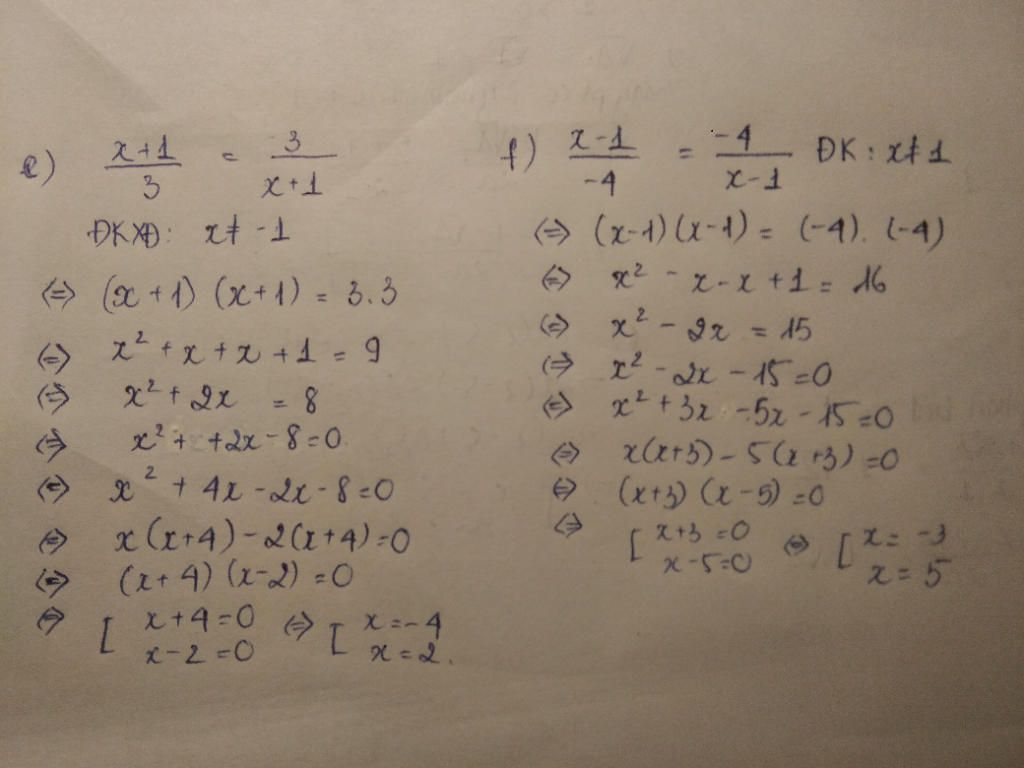 e) \frac{x+1}{3} = \frac{3}{x+1}
ĐKXĐ: x ≠ -1
<=> (x+1) (x+1) = 3.3
<=> x² + x + x + 1 = 9
<=> x² + 2x = 8
<=> x² + +2x - 8 = 0
<=> x² + 4x - 2x - 8 = 0
<=> x(x+4) - 2(x+4) = 0
<=> (x+4) (x-2) = 0
<=> [ x+4 = 0 <=> [ x = -4
x-2 = 0 x = 2.
f) \frac{x-1}{-4} = \frac{-4}{x-1} ĐK: x ≠ 1
<=> (x-1)(x-1) = (-4). (-4)
<=> x² - x - x + 1 = 16
<=> x² - 2x = 15
<=> x² - 2x - 15 = 0
<=> x² + 3x - 5x - 15 = 0
<=> x(x+3) - 5(x+3) = 0
<=> (x+3) (x-5) = 0
<=> [ x+3 = 0 <=> [ x = -3
x-5 = 0 x = 5